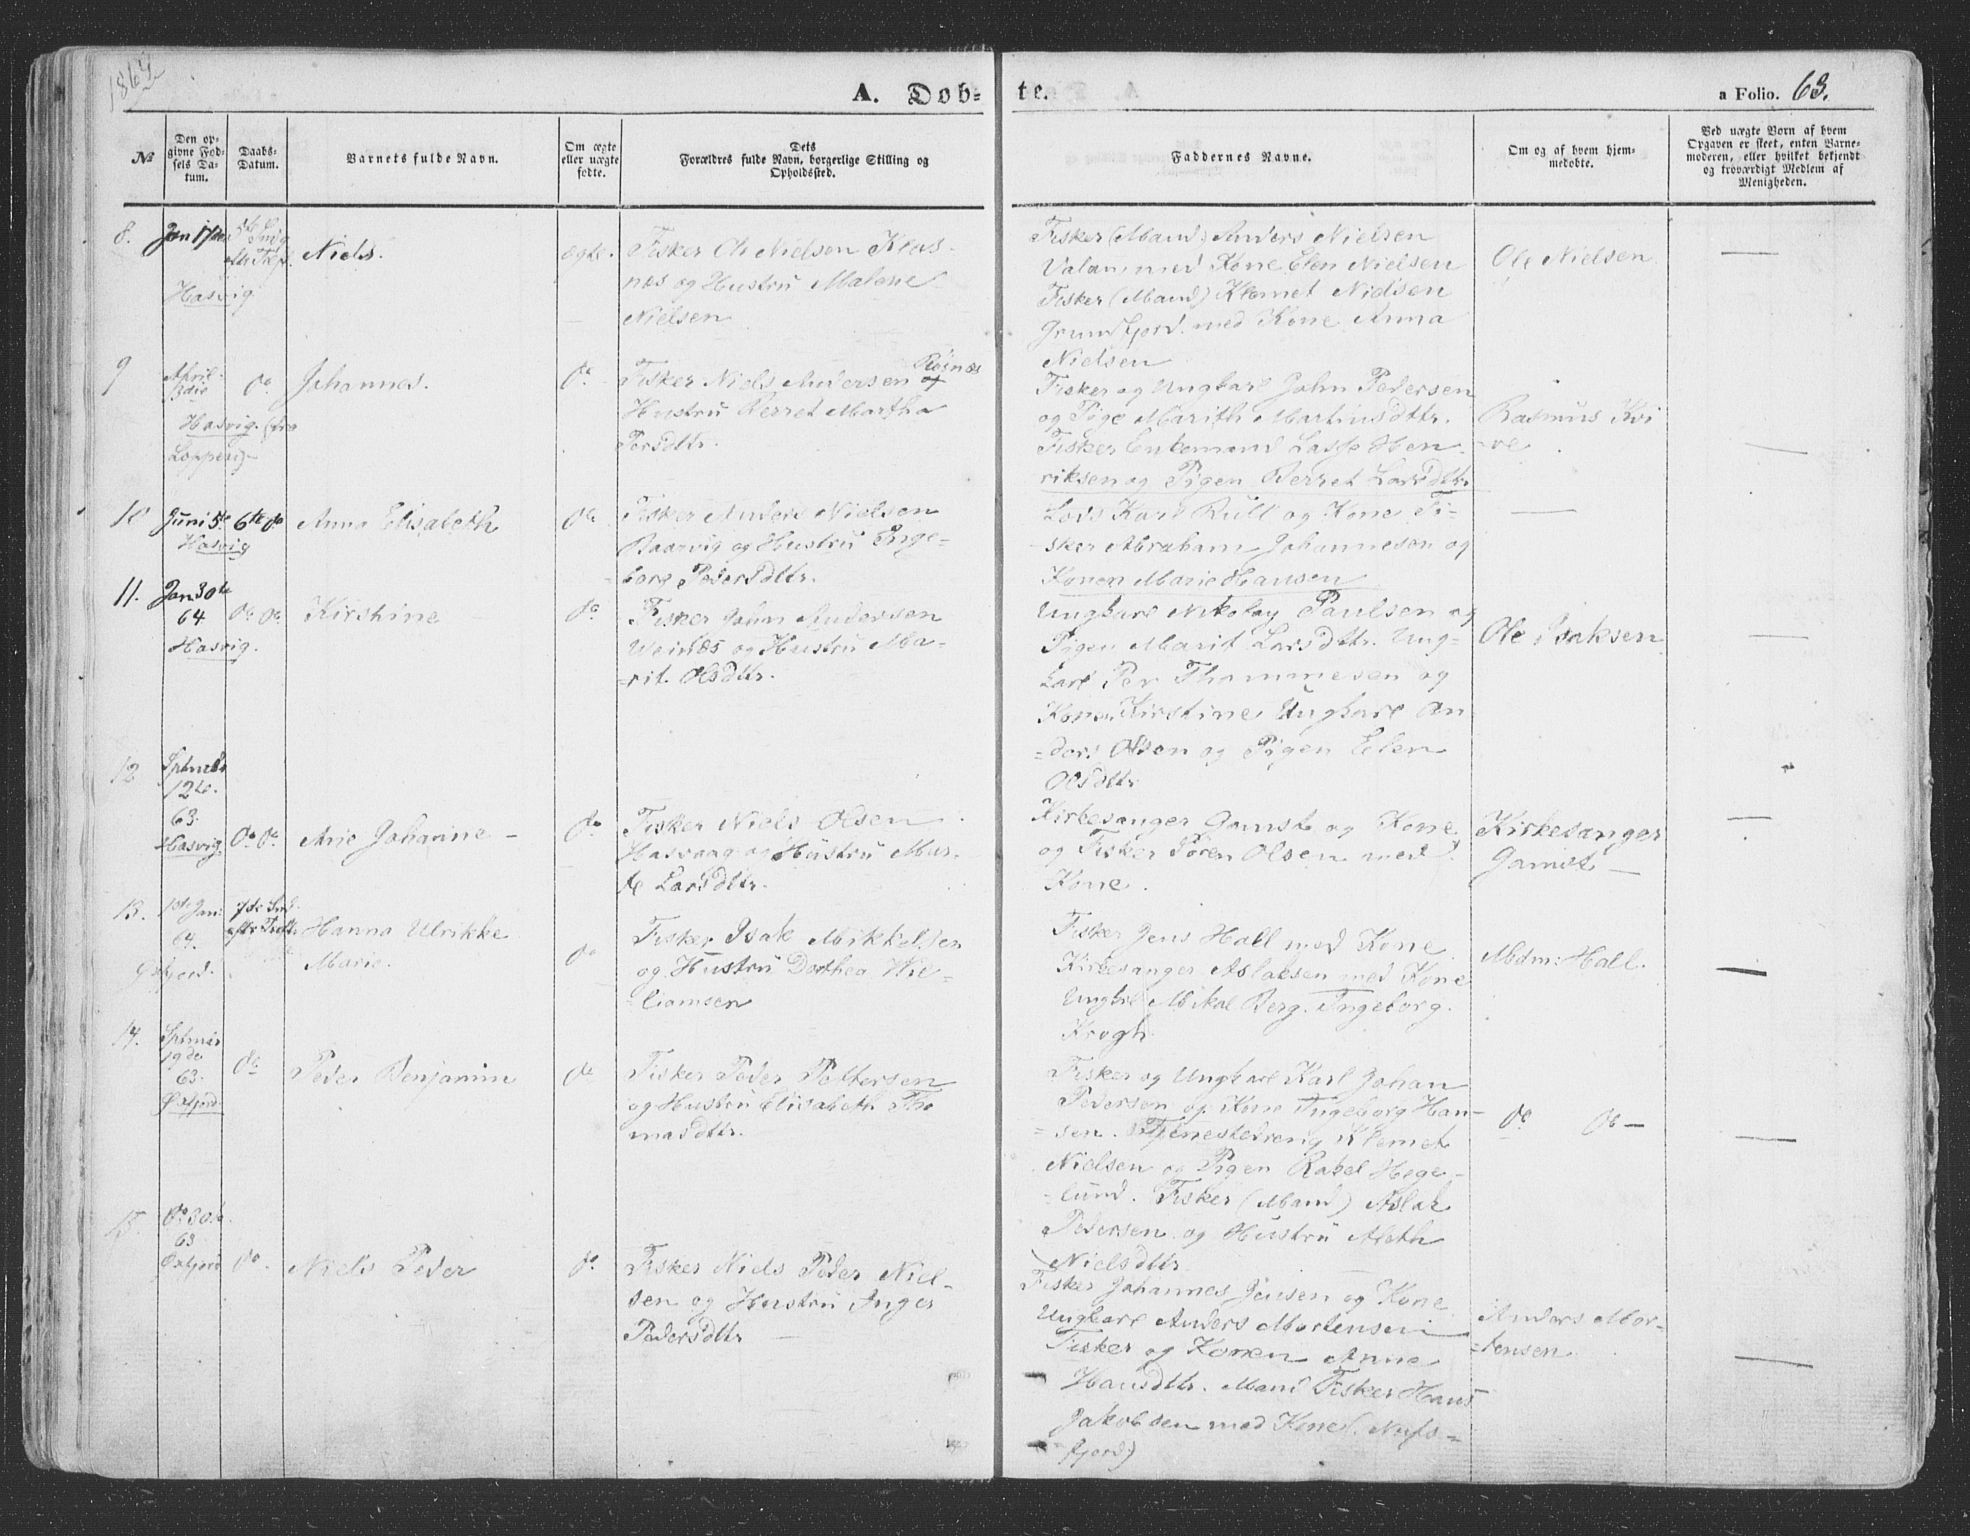 1864
A. Døb-
te.
a Folio. 63.
№
Den op-
givne Fød-
sels Da-
tum.
Daabs-
Datum.
Barnets fulde Navn.
Om ægte
eller uægte
fødte.
Dets
Forældres fulde Navn, borgerlige Stilling og
Opholdssted.
Faddernes Navne.
Om og af hvem hjem-
medøbte.
Ved uægte Børn af hvem
Opgaven er skeet, enten Barne-
moderen, eller hvilket bekjendt
og troværdigt Medlem af
Menigheden.
8.
Jan 17de
Hasvig
Niels.
ægte.
Fisker Ole Nielsen Klas
nes og Hustru Malene
Nielsen
Fisker (Mand) Anders Nielsen
med Kone Elen Nielsen
Fisker (Mand) Klemet Nielsen
Grundfjord. med Kone Anna
Nielsen
Ole Nielsen
—
9
April
Hasvig. fra
Loppen
do
Johannes.
do
Fisker Niels Andersen Røgnæs
og
Hustru Berret Martha
Persdttr.
Fisker og Ungkarl John Pedersen
og Pige Marith Martinsdttr.
Fisker Enkemand Lasse Hen
riksen og Pigen Berret Larsdttr.
Rasmus Kvi
ve
—
10
Juni 5te
Hasvig
6te do
Anna Elisabeth
do
Fisker Anders Nielsen
og Hustru Inge-
borg Pedersdttr.
Lods Karl Rull og Kone Fi-
sker Abraham Johannesen og
Konen Marie Hansen
—
11.
Jan 30te
64
Hasvig.
do do
Kirstine
do
Fisker John Andersen
og Hustru Ma-
rit. Olsdttr.
Ungkarl Nikolay Paulsen og
Pigen Marit Larsdttr. Ung-
karl Per Thommesen og
Konen Kirstine Ungkarl An
ders Olsen og Pigen Elen
Olsdttr
Ole Isaksen
—
12
Sptmbr
12te.
63.
Hasvig
do do
Ane Johanne —
do
Fisker Niels Olsen
Hasvaag og Hustru Mar-
te Larsdttr.
Kirkesanger Gamst og Kone
og Fisker Søren Olsen med
Kone.
Kirkesanger
Gamst —
—
13.
1ste Jan:
64.
Øxfjord.
7de Snd
eftr Trett.
Hanna Ulrikke
Marie.
do
Fisker Isak Mikkelsen
og Hustru Dorthea Wil-
liamsen
Fisker Jens Hall med Kone
Kirkesanger Aslaksen med Kone
Ungkrl Mikal Berg. Ingeborg.
Krogh.
Mdm: Hall.
—
14.
Sptmbr
19de
63.
Øxfjord.
do
Peder Benjamin
do
Fisker Peder Pettersen
og Hustru Elisabeth Tho
masdttr.
Fisker og Ungkarl Karl Johan
Pedersen og Kone Ingeborg Han-
sen. Tjenestedreng Klemet
Nielsen og Pigen Rakel Hege-
lund. Fisker (Mand) Aslak
Pedersen og Hustru Aleth
Nielsdttr
do do —
—
15.
do 30te
63
Øxfjord
do.
Niels Peder
do.
Fisker Niels Peder Niel-
sen og Hustru Inger
Pedersdttr
—
Fisker Johannes Jensen og Kone
Ungkarl Anders Mortensen
Fisker og Konen Anne
Hansdttr. Mand Fisker Hans
Jakobsen med Kone (Nufs-
fjord)
Anders Mor-
tensen
—